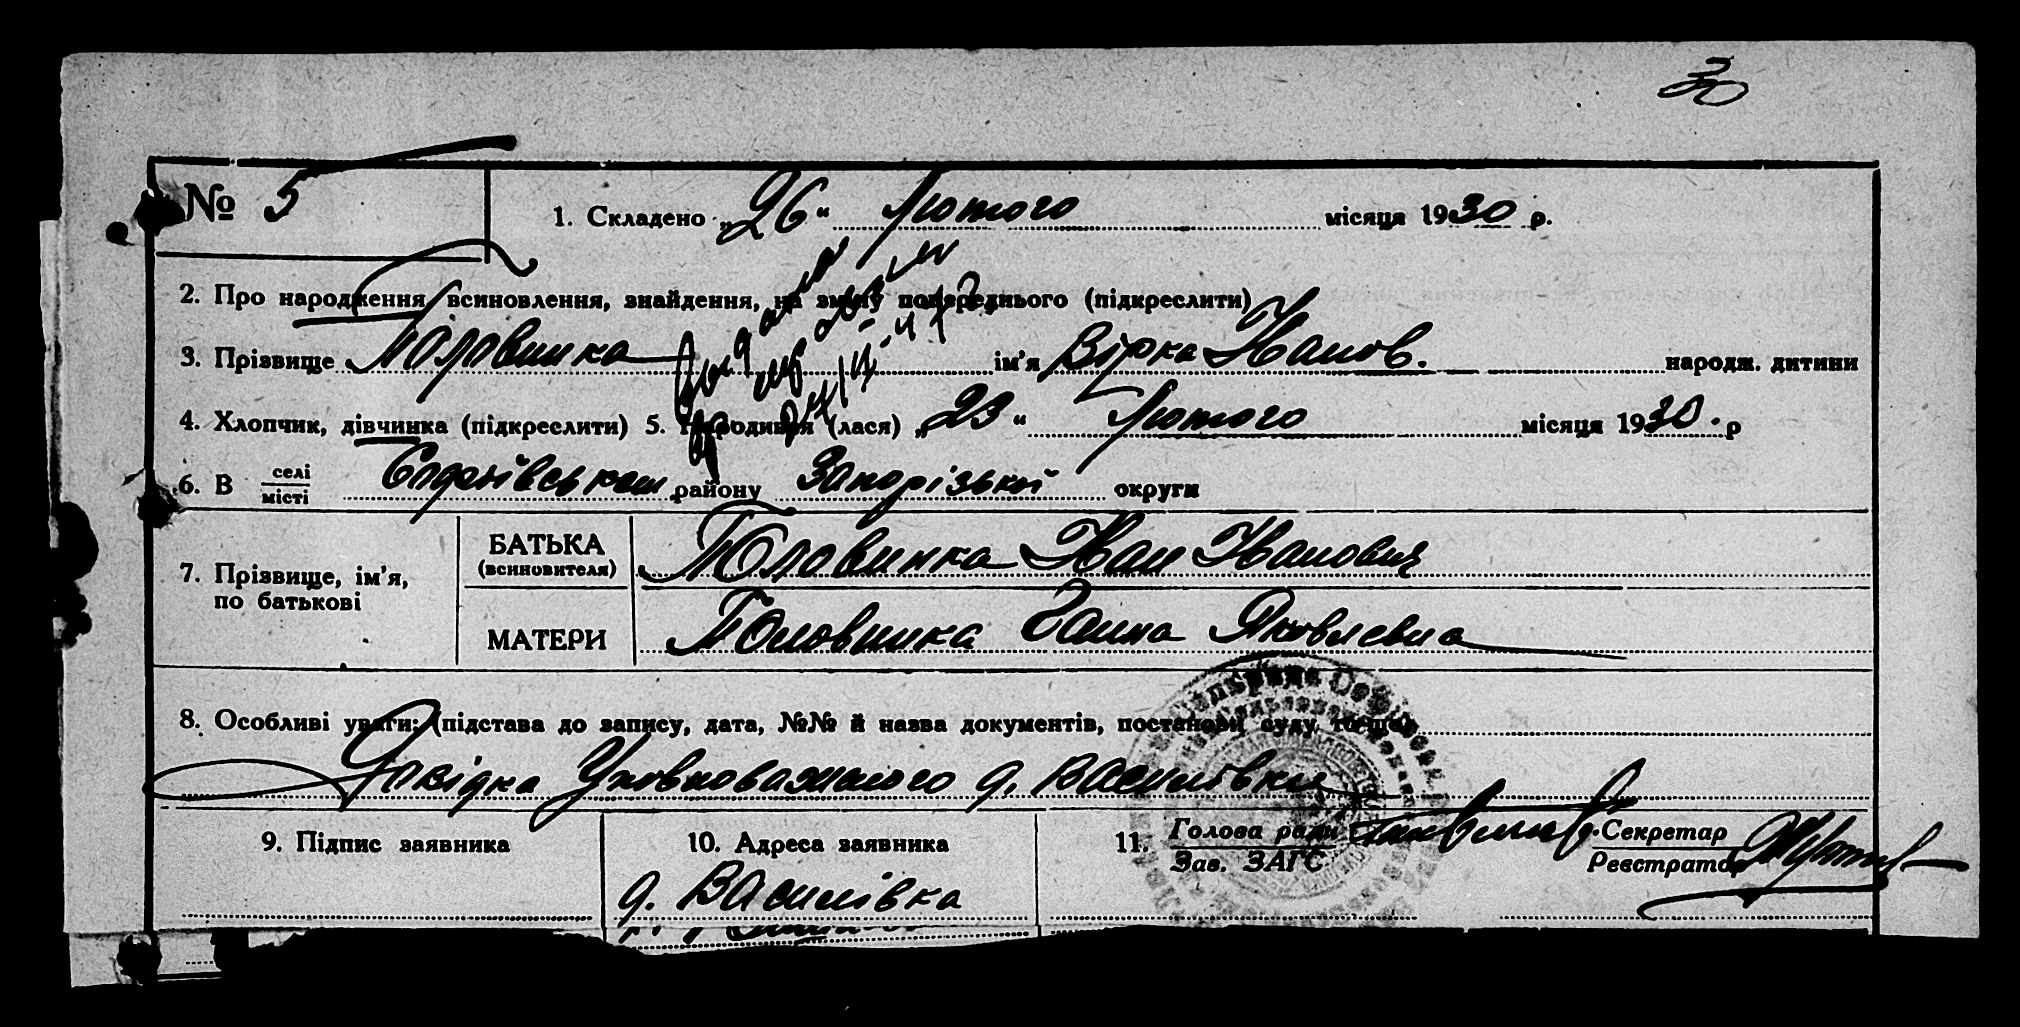 30
№ 5
1. Складено „26“ Лютого місяця 1930 р.
2. Про народження, всиновлення, знайдення, на зміну попереднього (підкреслити)
3. Прізвище Головинка ім’я Вірка Иванов. народж. дитини
4. Хлопчик, дівчинка (підкреслити) 5. Народився (лася) „23“ Лютого місяця 1930. р
6. В селі місті району Запорізької округи
7. Прізвище, ім’я, по батькові
БАТЬКА (всиновителя) Головинка Иван Иванович
МАТЕРИ Головинка Ганна Яковлевна
8. Особливі уваги: (підстава до запису, дата, №№ й назва документів, постанови суду, тощо)
Довідка Уповноваженого д. Василівки
9. Підпис заявника
10. Адреса заявника
11. Голова ради Секретар
Зав. ЗАГС Реєстратор
д. Василівка